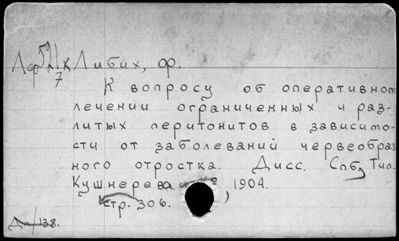 Либих, Ф.
К вопросу об оперативном
лечении ограниченных и раз-
литых перитонитов в зависимо-
сти от заболеваний червеобраз
ного отростка. Дисс. Спб, Тип.
Кушнерева 1904.
стр. 306.
138.